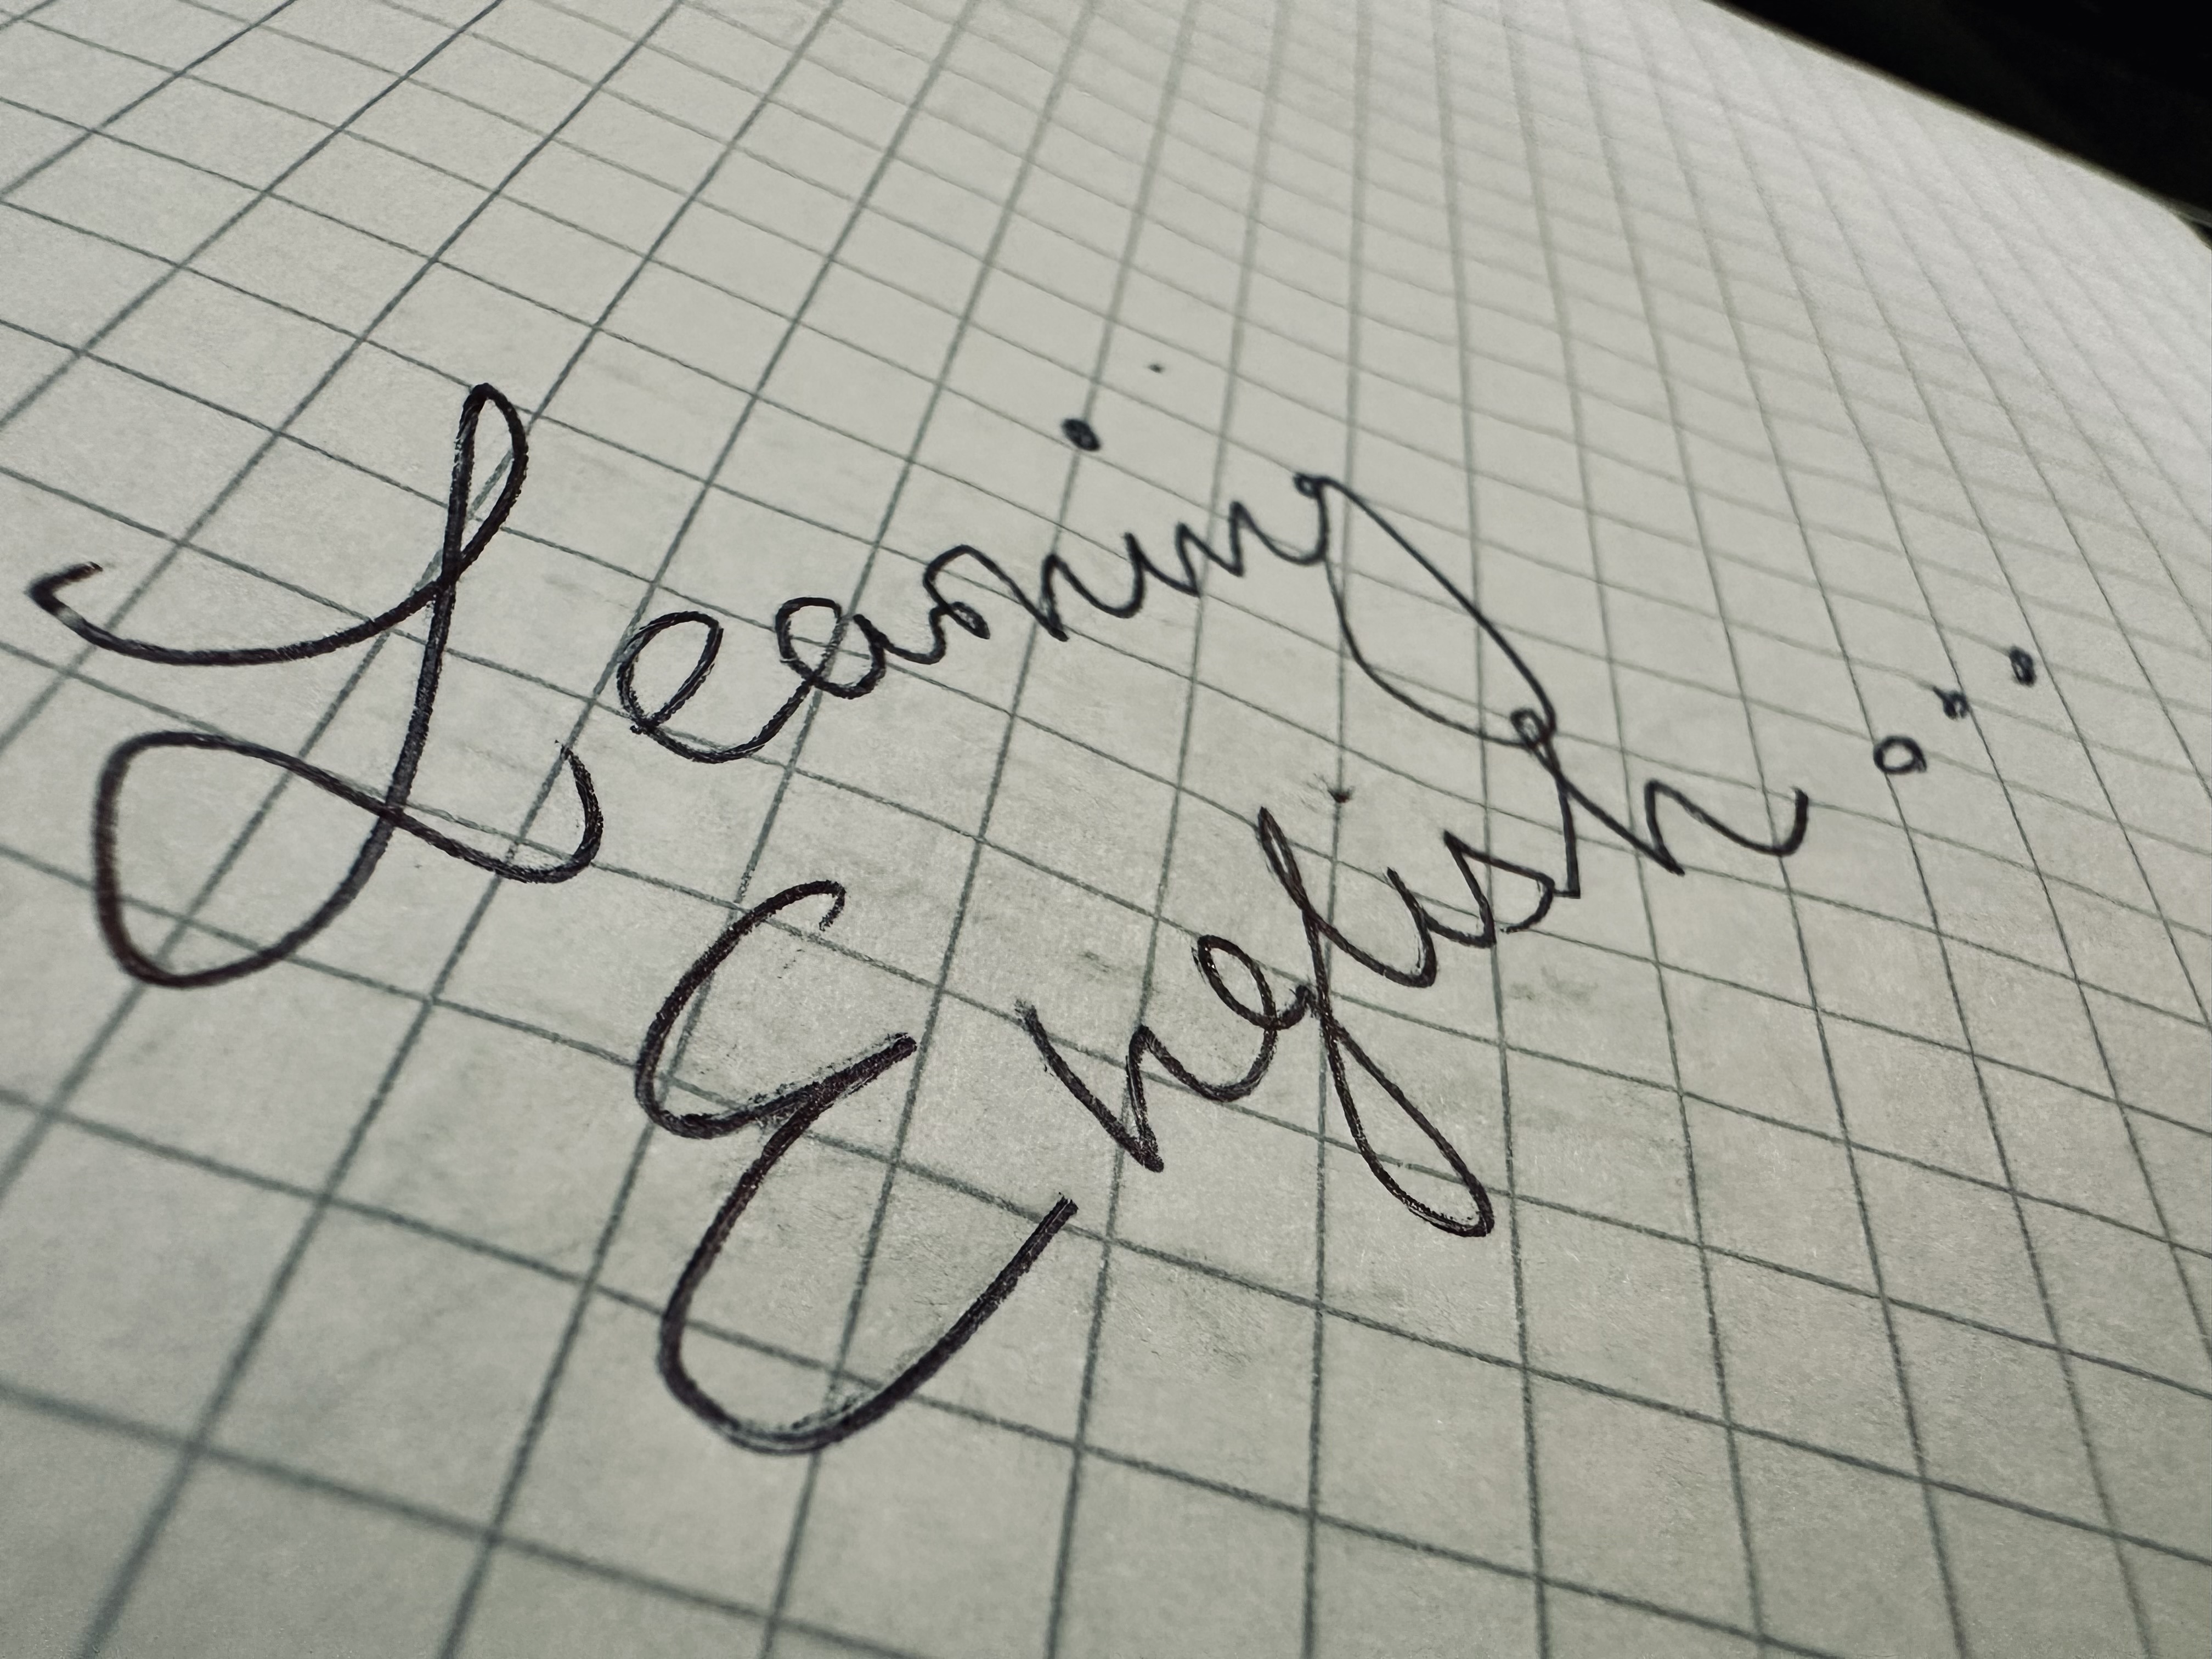 Learning
English...